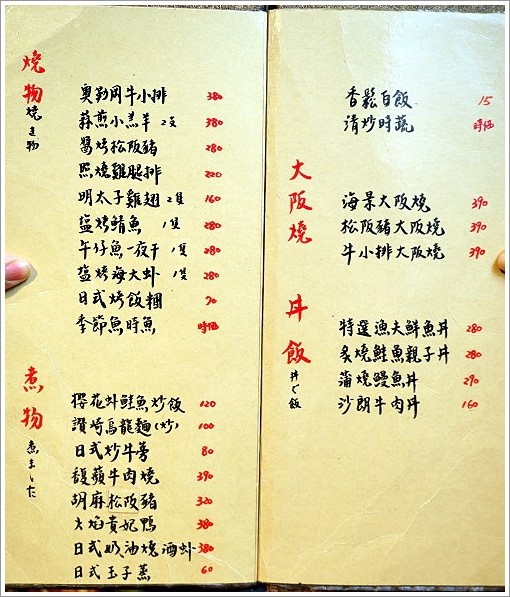 燒物
燒き物
奧勒岡牛小排 380
蒜煎小羔羊 2支 380
醬烤松阪豬 280
照燒雞腿排 220
明太子雞翅 2隻 160
鹽烤鯖魚 1隻 280
午仔魚一夜干 1隻 280
鹽烤海大虾 1隻 280
日式烤飯糰 70
季節魚時魚 時価
煮物
煮ました
櫻花虾鮭魚炒飯 120
讚崎烏龍麵(炒) 100
日式炒牛蒡 80
馥蘋牛肉燒 390
胡麻松阪豬 320
火焰貴妃鴨 380
日式奶油燒酒虾 380
日式玉子蒸 60
香鬆白飯 15
清炒時蔬 時価
大阪燒
海景大阪燒 390
松阪豬大阪燒 390
牛小排大阪燒 390
丼飯
丼ぐ飯
特選漁夫鮮魚丼 280
炙燒鮭魚親子丼 280
蒲燒鰻魚丼 290
沙朗牛肉丼 160